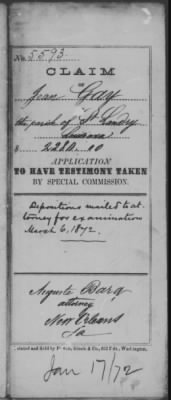 No. 5593.
CLAIM
OF
Jean Gay
the parish of St. Landry
Louisiana
$ 2280.00
APPLICATION
TO HAVE TESTIMONY TAKEN
BY SPECIAL COMMISSION.
Depositions mailed to at-
torney for examination
March 6, 1872.
Auguste
attorney
New Orleans
La
Jan 17/72